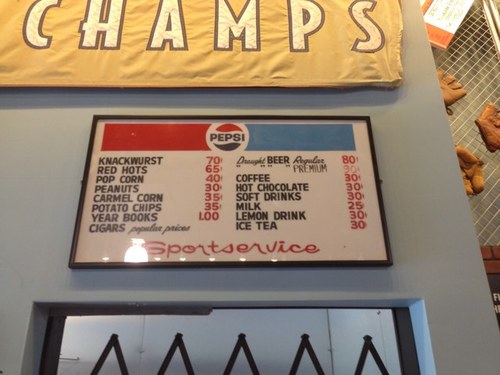 CHAMPS
PEPSI
KNACKWURST 70¢
RED HOTS 65¢
POP CORN 40¢
PEANUTS 30¢
CARMEL CORN 35¢
POTATO CHIPS 35¢
YEAR BOOKS 1.00
CIGARS popular prices
Draught BEER Regular 80¢
" " PREMIUM
COFFEE 30¢
HOT CHOCOLATE 30¢
SOFT DRINKS 30¢
MILK 25¢
LEMON DRINK 30¢
ICE TEA 30¢
Sportservice